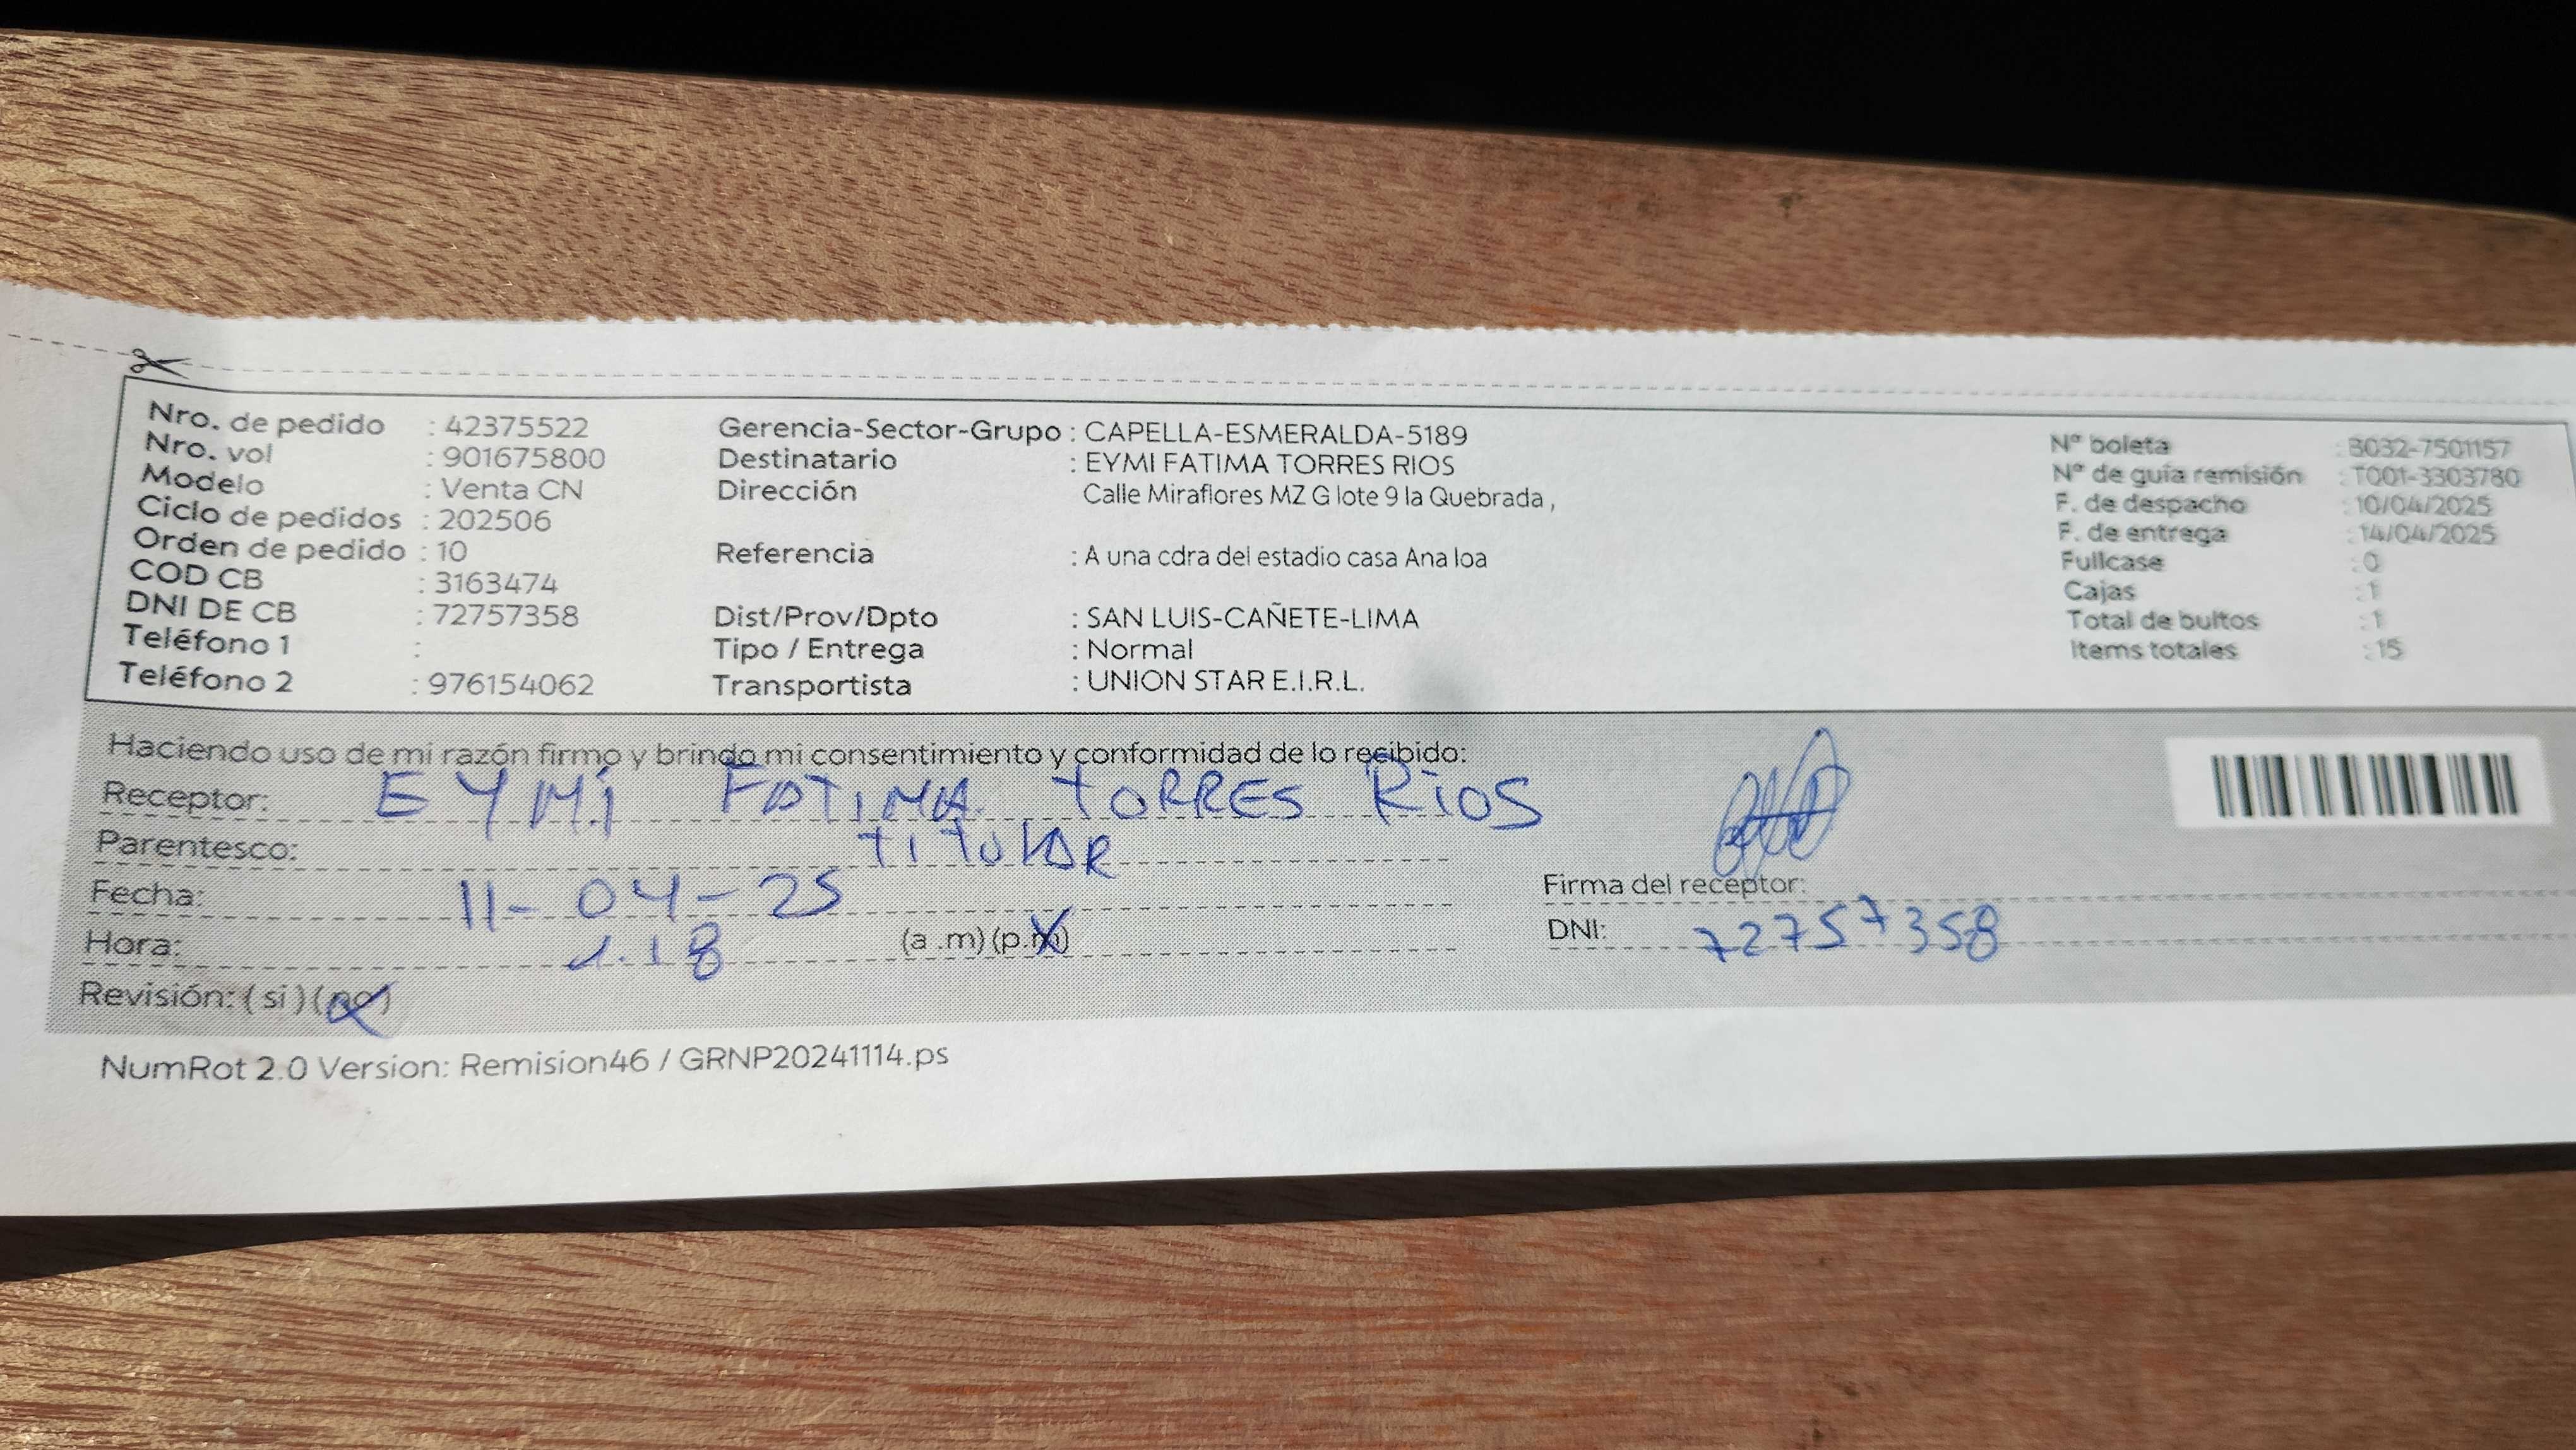 Nro. de pedido : 42375522
Nro. vol : 901675800
Modelo : Venta CN
Ciclo de pedidos : 202506
Orden de pedido : 10
COD CB : 3163474
DNI DE CB : 72757358
Teléfono 1 :
Teléfono 2 : 976154062
Gerencia-Sector-Grupo : CAPELLA-ESMERALDA-5189
Destinatario : EYMI FATIMA TORRES RIOS
Dirección Calle Miraflores MZ G lote 9 la Quebrada ,
Referencia : A una cdra del estadio casa Ana loa
Dist/Prov/Dpto : SAN LUIS-CAÑETE-LIMA
Tipo / Entrega : Normal
Transportista : UNION STAR E.I.R.L.
N° boleta : B032-7501157
N° de guía remisión : T001-3303780
F. de despacho : 10/04/2025
F. de entrega : 14/04/2025
Fullcase : 0
Cajas : 1
Total de bultos : 1
Items totales : 15
Haciendo uso de mi razón firmo y brindo mi consentimiento y conformidad de lo recibido:
Receptor: EYMi FATIMA TORRES RIOS
Parentesco: TITULAR
Fecha: 11-04-25
Hora: 1.18 (a .m) (p.m)
Revisión: ( si ) ( no )
Firma del receptor:
DNI: 72757358
NumRot 2.0 Version: Remision46 / GRNP20241114.ps